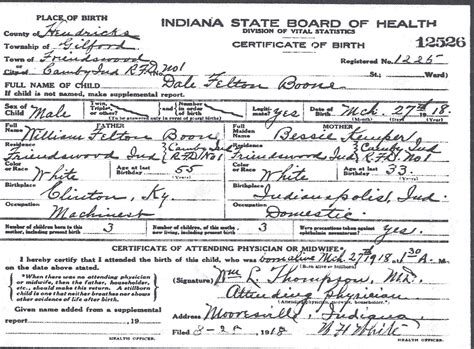 PLACE OF BIRTH
INDIANA STATE BOARD OF HEALTH
County of Hendricks
DIVISION OF VITAL STATISTICS
Township of Gilford
CERTIFICATE OF BIRTH
12526
Town of Friendswood
Registered No. 1225
City of Camby Ind R.F.D. No 1
St. Ward)
FULL NAME OF CHILD Dale Felton Boone
If child is not named, make supplemental report.
Sex of Child Male
Twin, Triplet, or other?
and Number in order of birth
Legitimate? yes
Date of Birth Mch. 27th 1918
(Month) (Day) (Year)
FATHER
MOTHER
Full Name William Felton Boone
Full Maiden Name Bessie Kemper
Residence Friendswood Ind Camby Ind R.F.D. No 1
Residence Friendswood Ind Camby Ind R.F.D. No 1
Color or Race White
Age at last Birthday 55 (Years)
Color or Race White
Age at last Birthday 33 (Years)
Birthplace Clinton, Ky.
Birthplace Indianapolis, Ind.
Occupation Machinest
Occupation Domestic
Number of children born to this mother, including present birth 3
Number of children, of this mother, now living, including present birth 3
Were precautions taken against ophthalmia neonatorum? yes.
CERTIFICATE OF ATTENDING PHYSICIAN OR MIDWIFE*
I hereby certify that I attended the birth of this child, who was born alive Mch. 27th 1918, at 30 A. M.
on the date above stated.
(Born alive or stillborn)
*When there was no attending physician or midwife, then the father, householder, etc., should make this return. A stillborn child is one that neither breathes nor shows other evidence of life after birth.
(Signature) Wm L. Thompson, M.D.
Attending physician
(Attending physician, midwife, householder.)
Given name added from a supplemental report 19
Address Mooresville, Indiana
Filed 1918
W H White
HEALTH OFFICER.
HEALTH OFFICER.